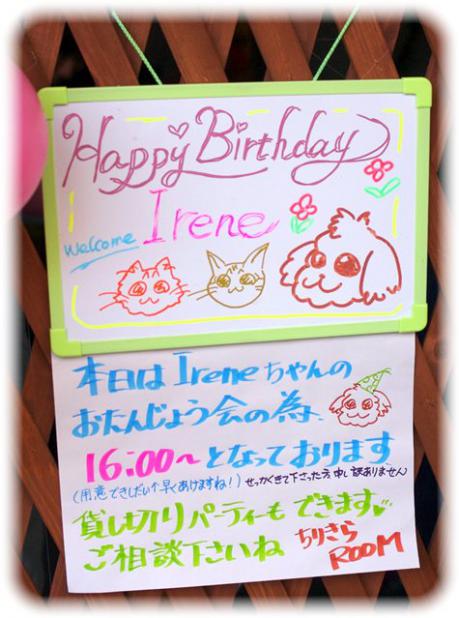 Happy Birthday
Welcome Irene
本日は Irene ちゃんの
おたんじょう会の為、
16:00〜となっております
(用意できしだい早くあけますね!) せっかくきて下さった方、申し訳ありません
貸し切りパーティーもできます
ご相談下さいね
ちりさら
ROOM